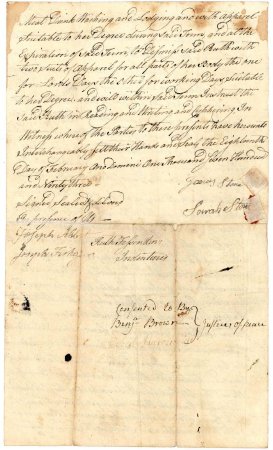 Meat Drink Washing and Lodging and with apparel
Suitable to her Degree during Said Term, and at the
Expiration of Said Term to Dismiss Said Ruth with
two suits of apparel for all parts of her Body the one
for Lords Days the other for working Days, Suitable
to her Degree and will within said Term Instruct the
Said Ruth in Reading and Writing and
Witness whereof the Parties to these presents have hereunto
Interchangeably Set their Hands and Seals the Eighteenth
Day of February Anno Domini One Thousand Seven Hundred
and Ninty three
Signed Sealed &
In presence of Us
Joseph
Joseph
James Stone
Sarah Stone
Ruth
Indentures
Consented to By
Benj Brown
Justices of peace